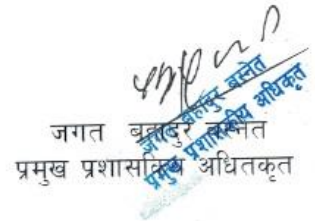 जगत बहादुर बस्नेत
प्रमुख प्रशासकिय अधितकृत
जगत बहादुर बस्नेत
प्रमुख प्रशासकीय अधिकृत